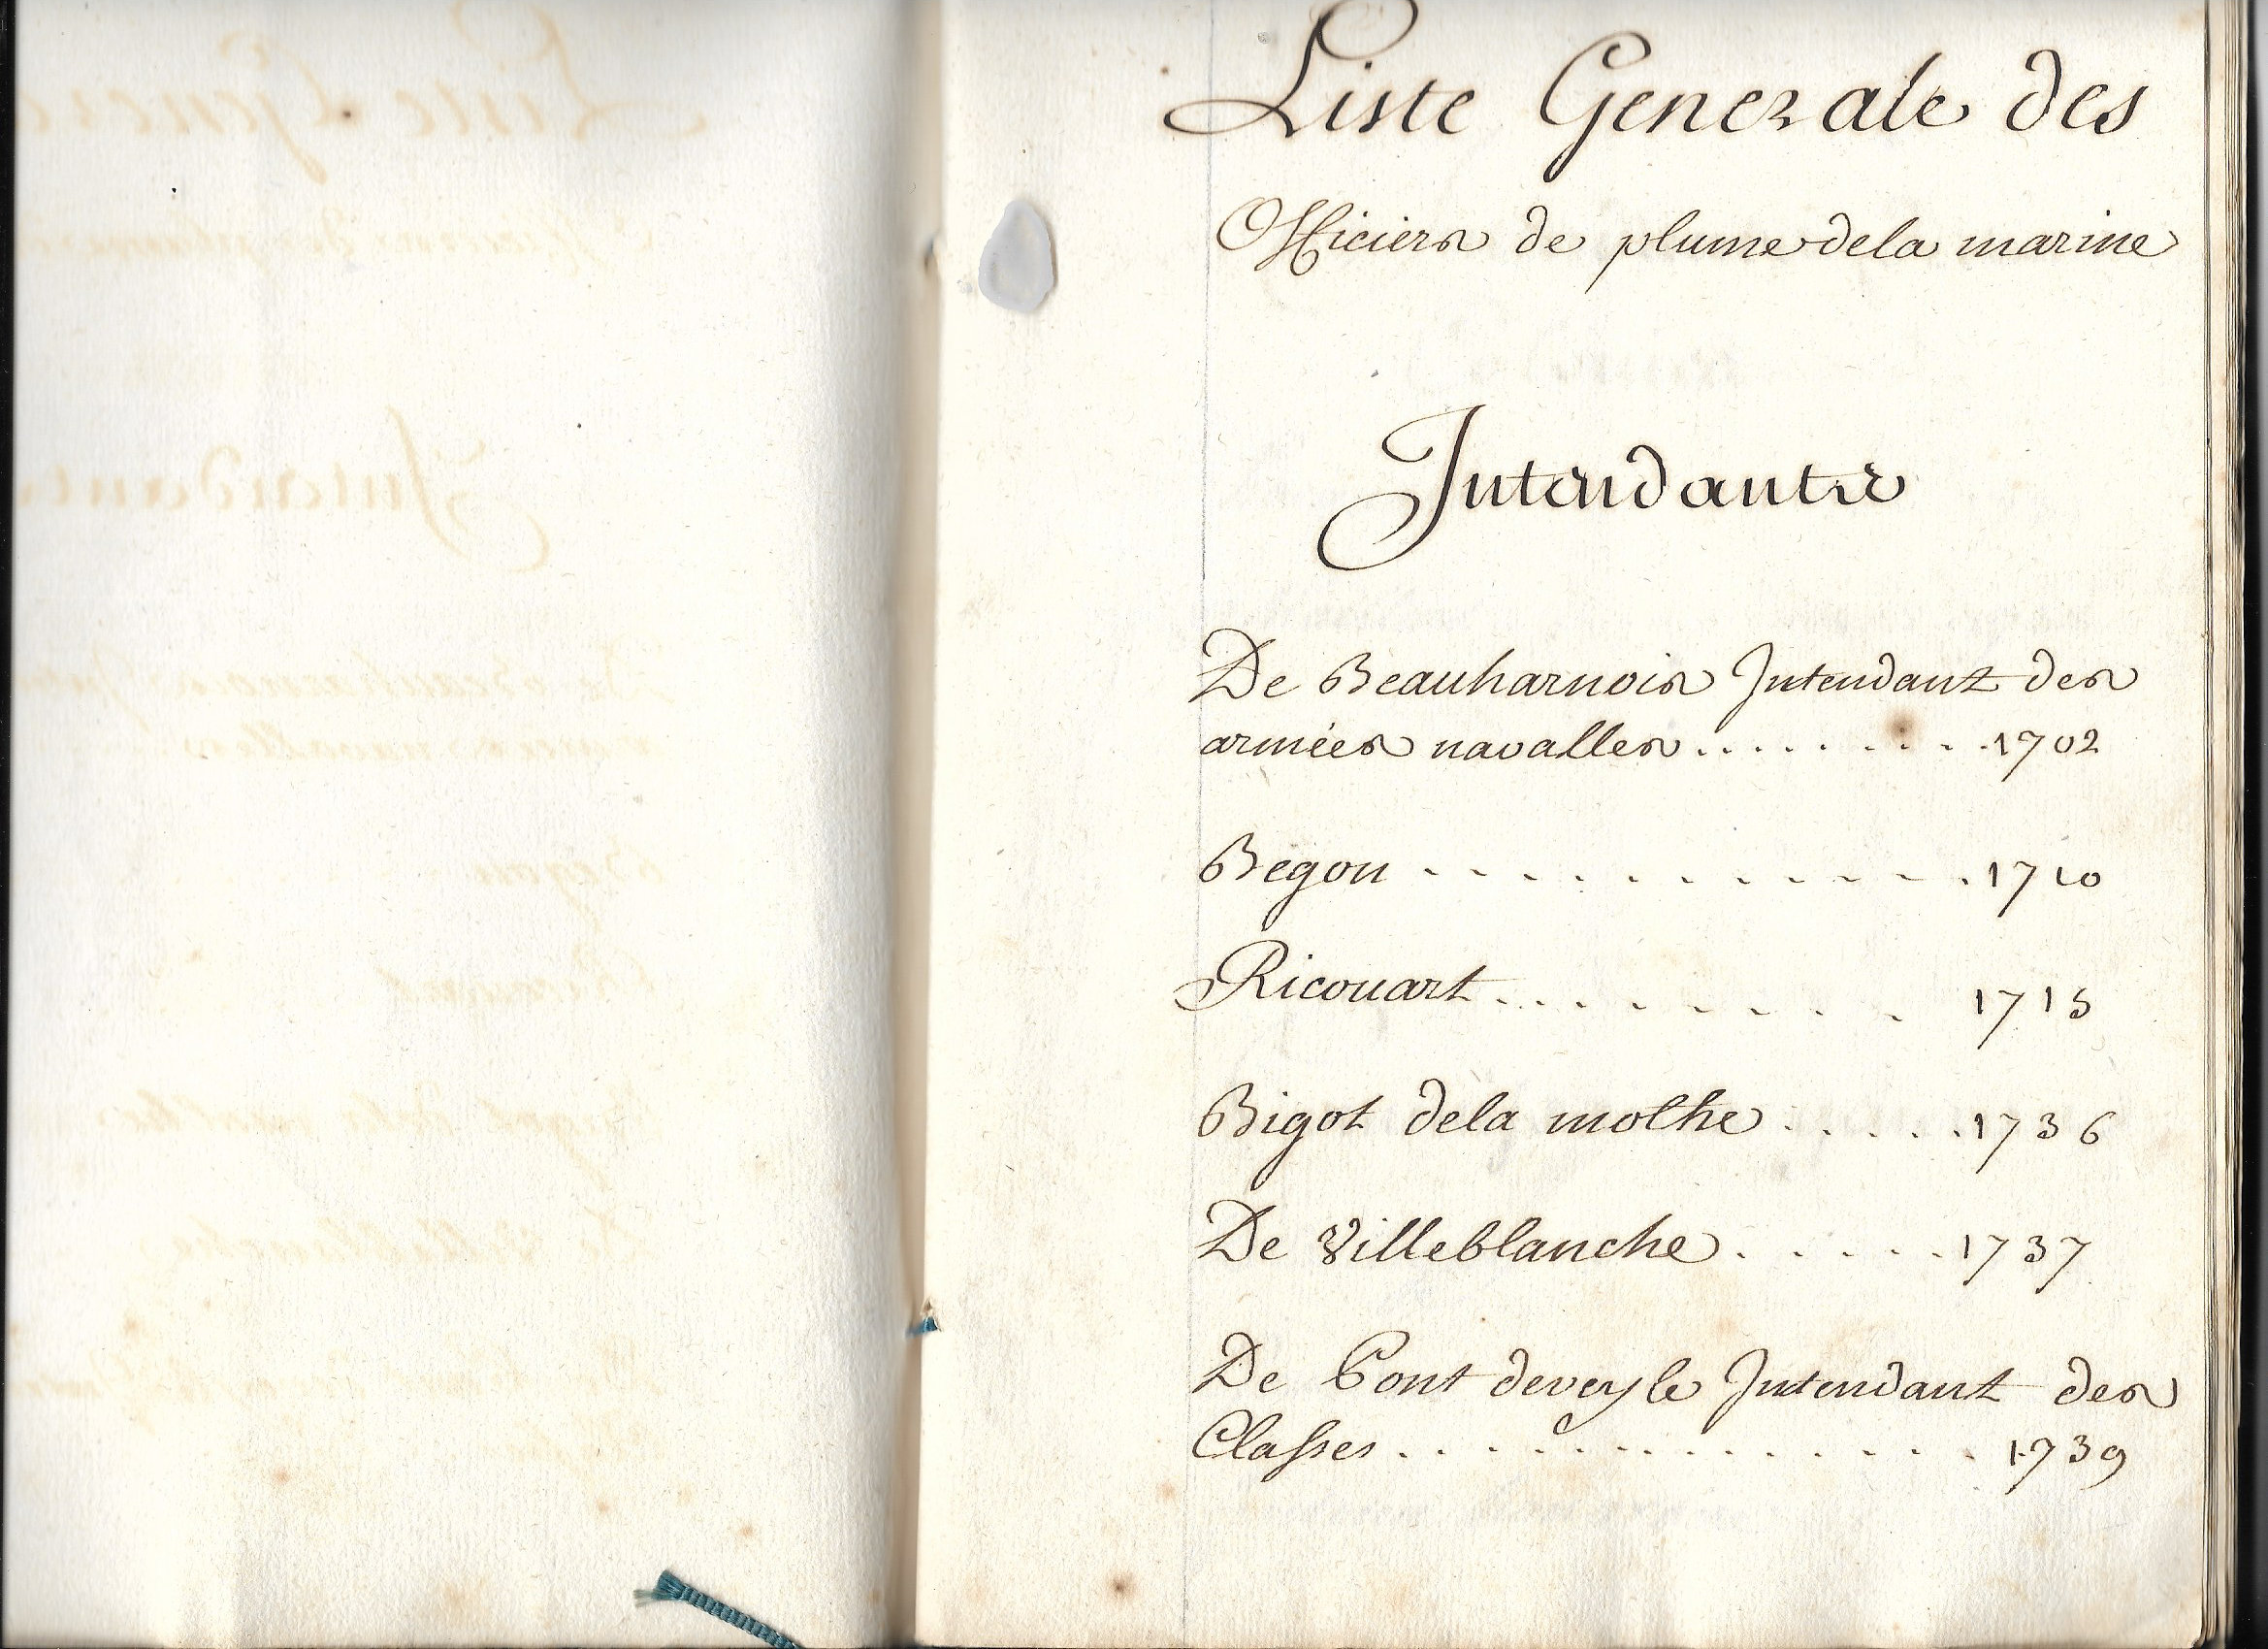 Liste Generale des
Officiers de plume dela marine
Intendants
De Beauharnois Intendant des
armées navalles......... 1702
Begon ............ 1710
Ricouart ........ 1715
Bigot dela mothe ...... 1736
De Villeblanche ..... 1737
De Pont deveyle Intendant des
Classes ............ 1739